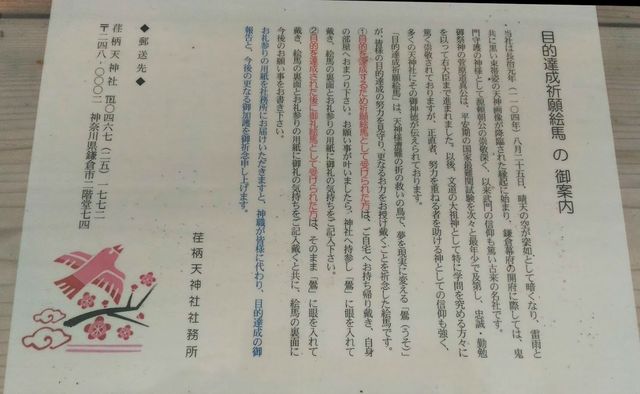 目的達成祈願絵馬 の 御案内
当社は長治元年(一一〇四年)八月二十五日、晴天の空が突如として暗くなり、雷雨と
共に黒い束帯姿の天神画像が降臨された縁起に始まり、鎌倉幕府の開府に際しては、鬼
門守護の神様として源頼朝公の崇敬深く、以来武門の信仰も篤い古来の名社です。
御祭神の菅原道真公は、平安期の国家最難関試験を次々と最年少で及第し、忠誠・勤勉
を以って右大臣まで進まれました。以後、文道の大祖神として特に学問を究める方々に
篤く崇敬されておりますが、正直者、努力を重ねる者を助ける神としての信仰も強く、
多くの天神社にその御神徳が伝えられております。
「目的達成祈願絵馬」は、天神様遭難の折の救いの鳥で、夢を現実に変える「鷽(うそ)」
が、皆様の目的達成の努力を見守り、更なるお力をお授け戴くことを祈念した絵馬です。
①目的を達成するため祈願絵馬として受けられた方は、ご自宅へお持ち帰り戴き、自身
の部屋へおまつり下さい。お願い事が叶いましたら、神社へ持参し「鷽」に眼を入れて
戴き、絵馬の裏面とお礼参りの用紙に御礼の気持ちをご記入下さい。
②目的を達成された後に御礼絵馬として受けられた方は、そのまま「鷽」に眼を入れて
戴き、絵馬の裏面とお礼参りの用紙に御礼の気持ちをご記入戴くと共に、絵馬の裏面に
今後のお願い事をお書き下さい。
お礼参りの用紙を社務所にお届けいただきますと、神職が皆様に代わり、目的達成の御
報告と、今後の更なる御加護を御祈念申し上げます。
荏柄天神社社務所
◆郵送先◆
荏柄天神社 ℡〇四六七(二五)一七七二
〒二四八-〇〇〇二 神奈川県鎌倉市二階堂七四